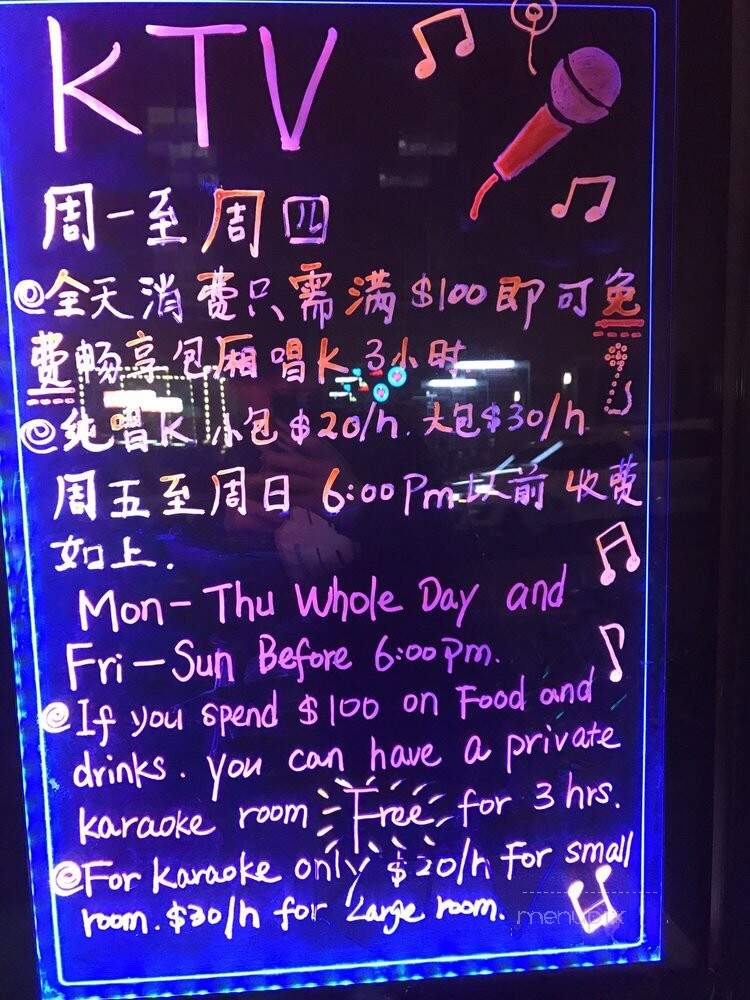 KTV
周一至周四
@全天消费只需满$100即可免
费畅享包厢唱K 3小时
@纯唱K 小包$20/h. 大包$30/h
周五至周日 6:00Pm以前 收费
如上.
Mon-Thu Whole Day and
Fri-Sun Before 6:00pm.
@If you spend $100 on Food and
drinks. you can have a private
karaoke room Free for 3 hrs.
@For karaoke only $20/h for small
room. $30/h for Large room.
menupix